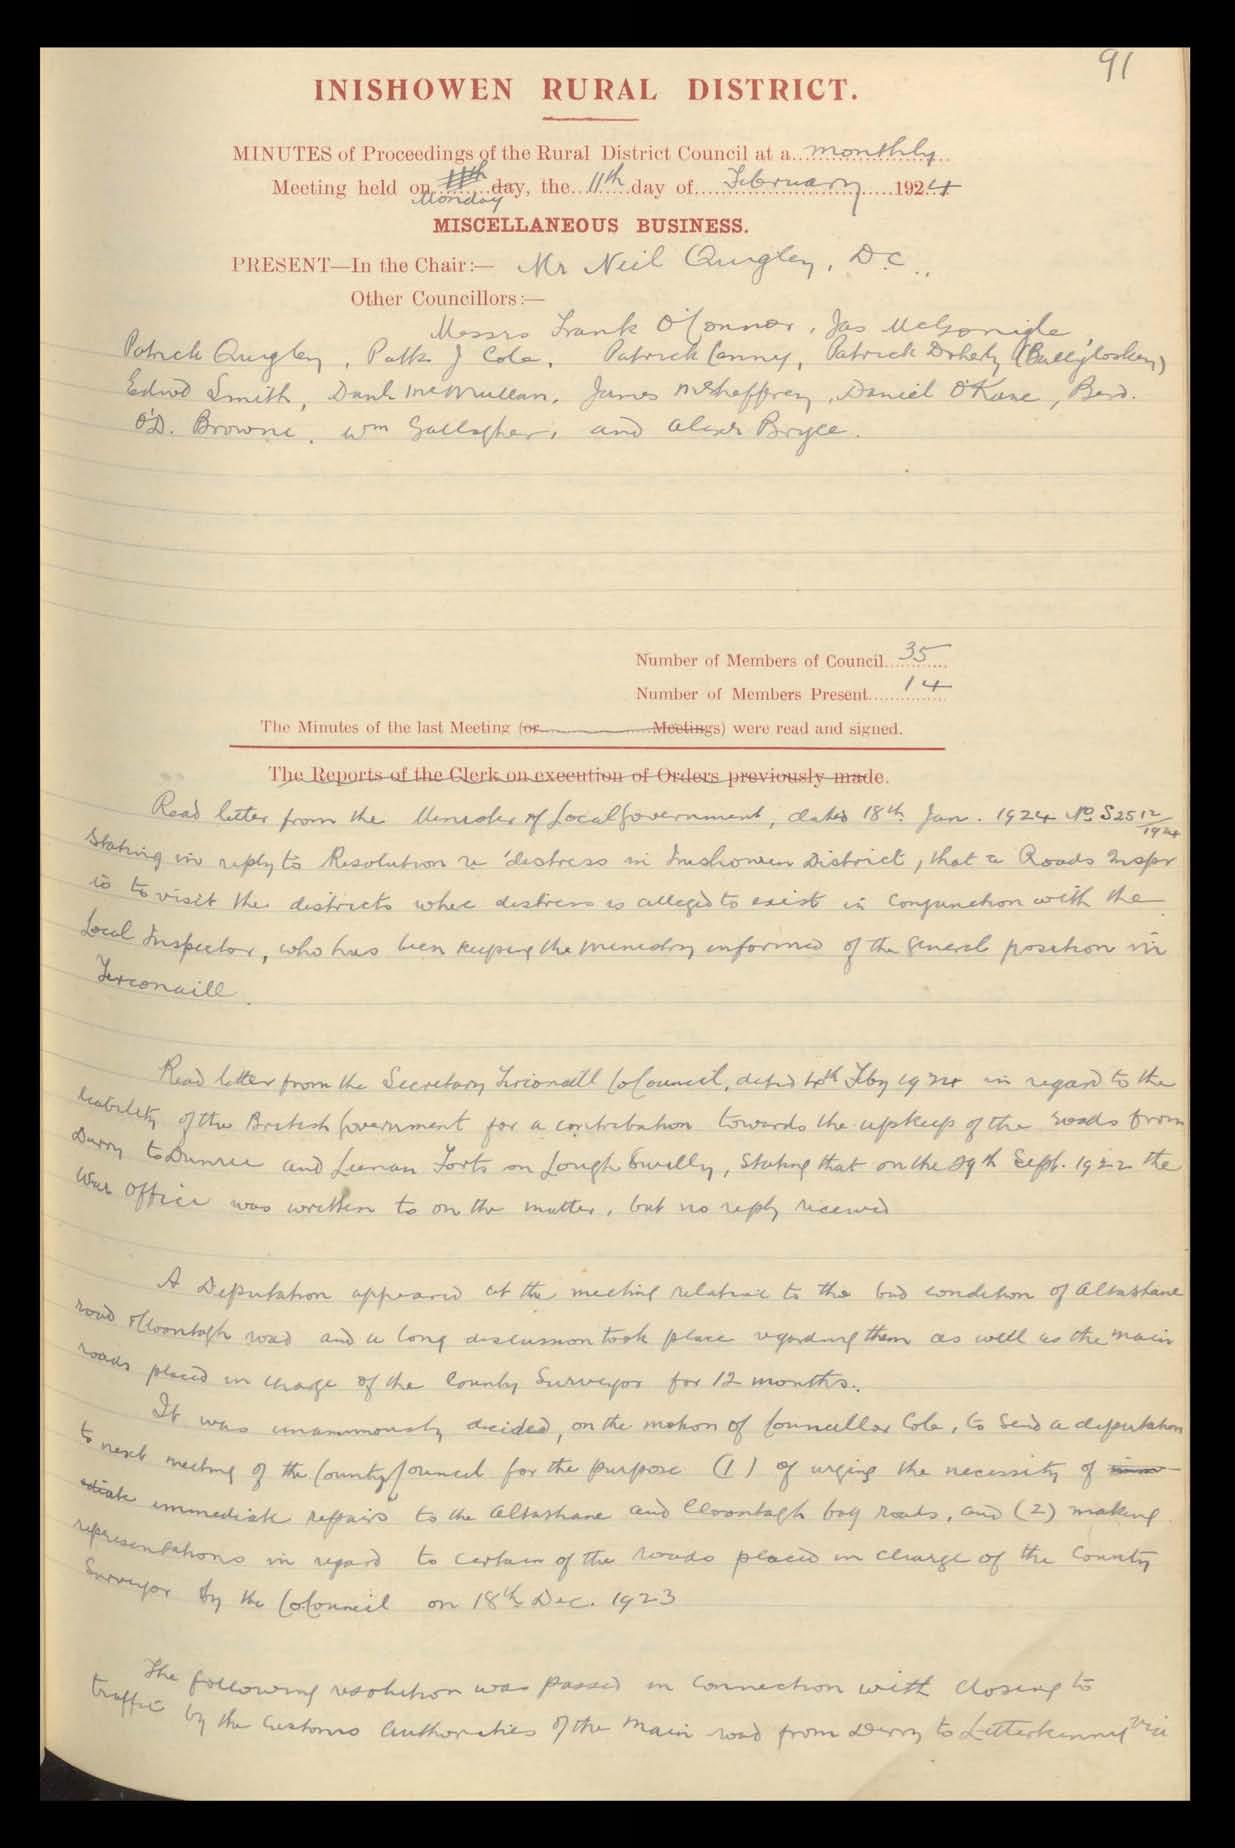 91
INISHOWEN RURAL DISTRICT.
MINUTES of Proceedings of the Rural District Council at a monthly
Meeting held on 11th day, the 11th day of February 1924
Monday
MISCELLANEOUS BUSINESS.
PRESENT—In the Chair:— Mr Neil Quigley, D.C.,
Other Councillors:—
Messrs Frank O'Connor, Jas McGonigle
Patrick Quigley, Patk J Cole, Patrick Canny, Patrick Doherty (Bally'loskey)
Edwd Smith, Danl McMullan, James McSheffrey, Daniel O'Kane, Berd.
O'D. Browne, Wm Gallagher, and Alexr Bryce.
Number of Members of Council 35
Number of Members Present 14
The Minutes of the last Meeting (or Meetings) were read and signed.
The Reports of the Clerk on execution of Orders previously made.
Read letter from the Minister of Local Government, dated 18th Jan. 1924 No S2512/1924
stating in reply to Resolution re 'distress in Inishowen District, that a Roads Inspr
is to visit the districts where distress is alleged to exist in conjunction with the
Local Inspector, who has been keeping the ministry informed of the general position in
Tirconaill.
Read letter from the Secretary Tirconaill Co Council, dated 4th Feby 1924 in regard to the
liability of the British Government for a contribution towards the upkeep of the roads from
Derry to Dunree and Leenan Forts on Lough Swilly, stating that on the 29th Sept. 1922 the
War Office was written to on the matter, but no reply received
A Deputation appeared at the meeting relative to the bad condition of Altashane
road & Cloontagh road and a long discussion took place regarding them as well as the main
roads placed in charge of the County Surveyor for 12 months.
It was unanimously decided, on the motion of Councillor Cole, to send a deputation
to next meeting of the County Council for the purpose (1) of urging the necessity of imm-
ediate immediate repairs to the Altashane and Cloontagh bog roads, and (2) making
representations in regard to certain of the roads placed in charge of the County
Surveyor by the Co. Council on 18th Dec. 1923
The following resolution was passed in connection with closing to
traffic by the Customs Authorities of the main road from Derry to Letterkenny via